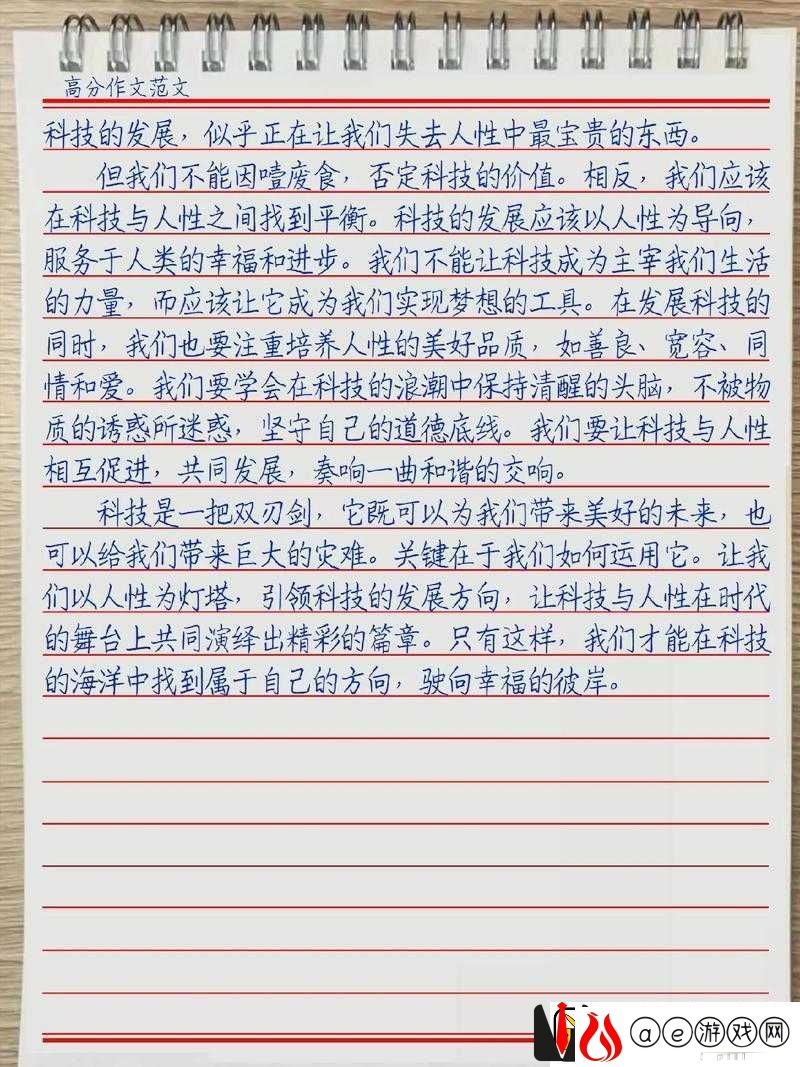 高分作文范文
科技的发展，似乎正在让我们失去人性中最宝贵的东西。
但我们不能因噎废食，否定科技的价值。相反，我们应该
在科技与人性之间找到平衡。科技的发展应该以人性为导向，
服务于人类的幸福和进步。我们不能让科技成为主宰我们生活
的力量，而应该让它成为我们实现梦想的工具。在发展科技的
同时，我们也要注重培养人性的美好品质，如善良、宽容、同
情和爱。我们要学会在科技的浪潮中保持清醒的头脑，不被物
质的诱惑所迷惑，坚守自己的道德底线。我们要让科技与人性
相互促进，共同发展，奏响一曲和谐的交响。
科技是一把双刃剑，它既可以为我们带来美好的未来，也
可以给我们带来巨大的灾难。关键在于我们如何运用它。让我
们以人性为灯塔，引领科技的发展方向，让科技与人性在时代
的舞台上共同演绎出精彩的篇章。只有这样，我们才能在科技
的海洋中找到属于自己的方向，驶向幸福的彼岸。
ae游戏网